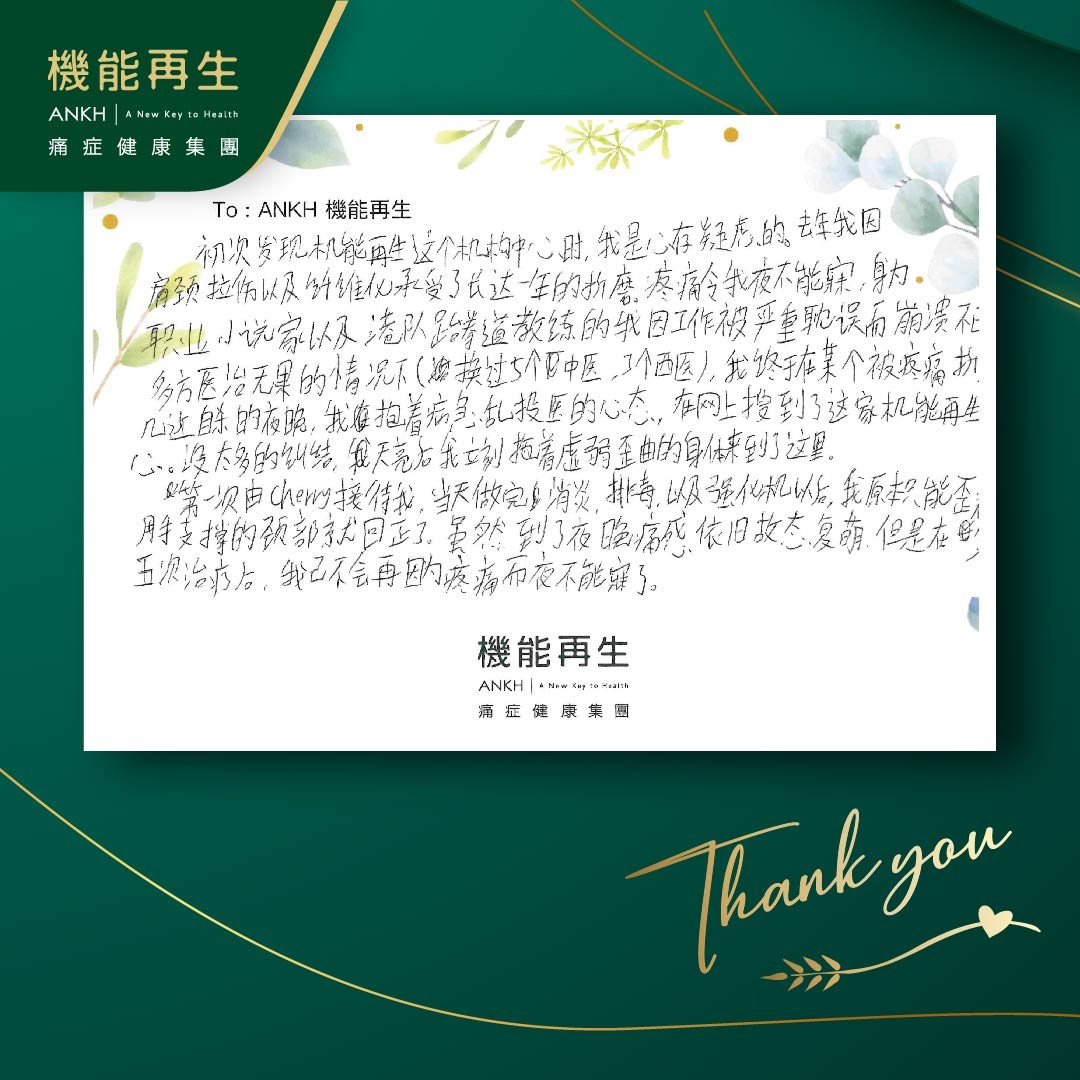 機能再生
ANKH | A New Key to Health
痛症健康集團
To : ANKH 機能再生
初次发现机能再生这个机构中心时,我是心存疑虑的。去年我因
肩颈拉伤以及纤维化承受了长达一年的折磨。疼痛令我夜不能寐,身为
职业小说家以及港队跆拳道教练的我因工作被严重耽误而崩溃不
多方医治无果的情况下(换过5个中医,3个西医),我终于在某个被疼痛折
几近自杀的夜晚,我抱着病急乱投医的心态,在网上搜到了这家机能再生
心。没太多的纠结,天亮后我立刻拖着虚弱歪曲的身体来到了这里。
第一次由Cherry接待我,当天做完消炎,排毒,以及强化机以后,我原本只能歪
用手支撑的颈部就回正了。虽然到了夜晚痛感依旧故态复萌,但是在
五次治疗后,我已不会再因为疼痛而夜不能寐了。
機能再生
ANKH | A New Key to Health
痛症健康集團
Thank you